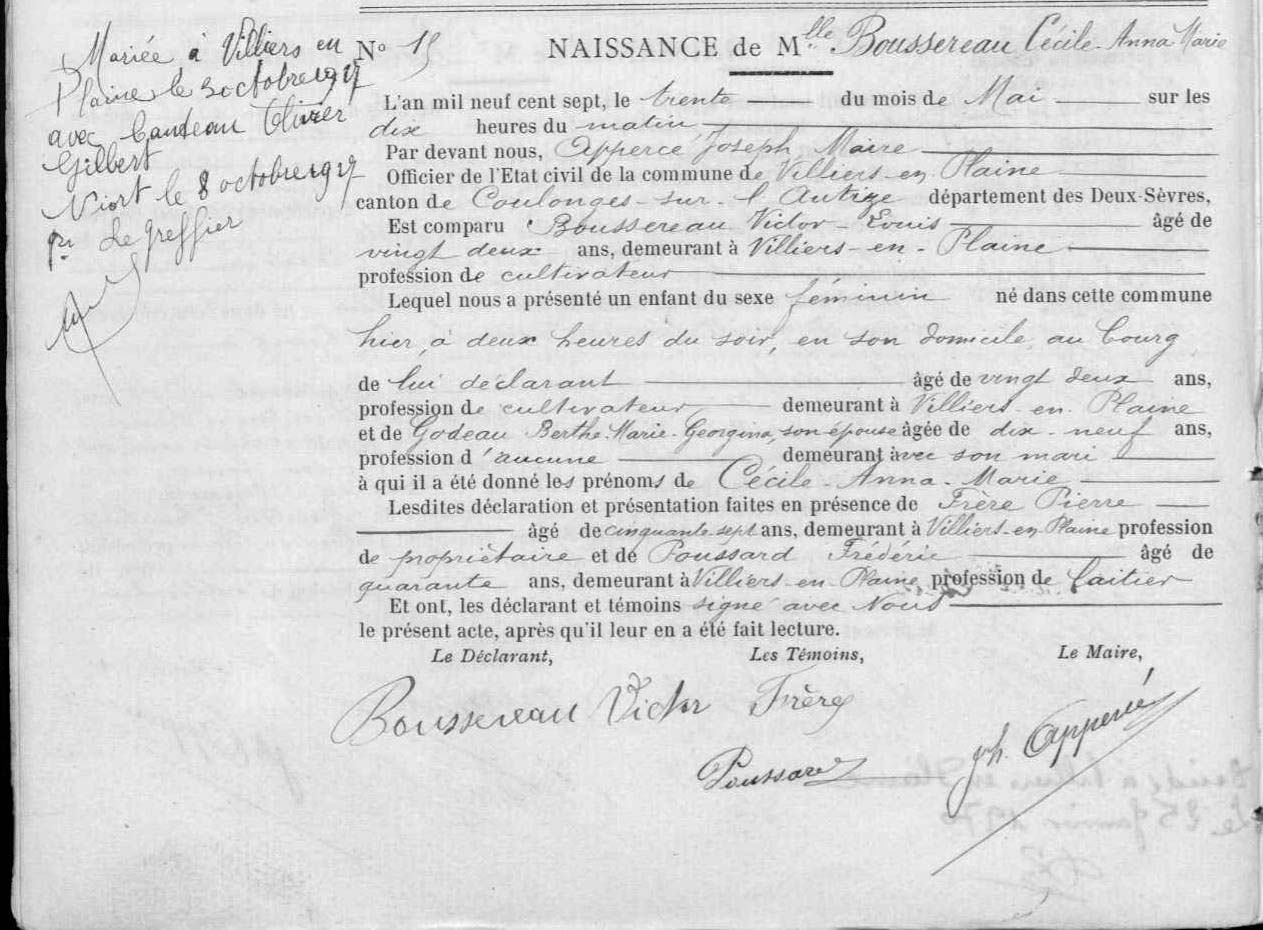 Mariée à Villiers en
Plaine le 3 octobre 1927
avec Caudeau Olivier
Gilbert
Niort le 8 octobre 1927
pr Le Greffier
No 15 NAISSANCE de Mlle Boussereau Cécile-Anna Marie
L'an mil neuf cent sept, le trente du mois de Mai sur les
dix heures du matin
Par devant nous, Appercé Joseph Maire
Officier de l'Etat civil de la commune de Villiers-en Plaine
canton de Coulonges-sur-l'Autize département des Deux-Sèvres,
Est comparu Boussereau Victor-Louis âgé de
vingt deux ans, demeurant à Villiers-en-Plaine
profession de cultivateur
Lequel nous a présenté un enfant du sexe féminin né dans cette commune
hier, à deux heures du soir, en son domicile au bourg
de lui déclarant âgé de vingt deux ans,
profession de cultivateur demeurant à Villiers-en-Plaine
et de Godeau Berthe-Marie-Georgina, son épouse âgée de dix-neuf ans,
profession d'aucune demeurant avec son mari
à qui il a été donné les prénoms de Cécile-Anna-Marie
Lesdites déclaration et présentation faites en présence de Frère Pierre
âgé de cinquante sept ans, demeurant à Villiers-en-Plaine profession
de propriétaire et de Poussard Frédéric âgé de
quarante ans, demeurant à Villiers-en-Plaine profession de laitier
Et ont, les déclarant et témoins signé avec Nous
le présent acte, après qu'il leur en a été fait lecture.
Le Déclarant, Les Témoins, Le Maire,
Boussereau Victor Frère
Poussard Jh. Appercé